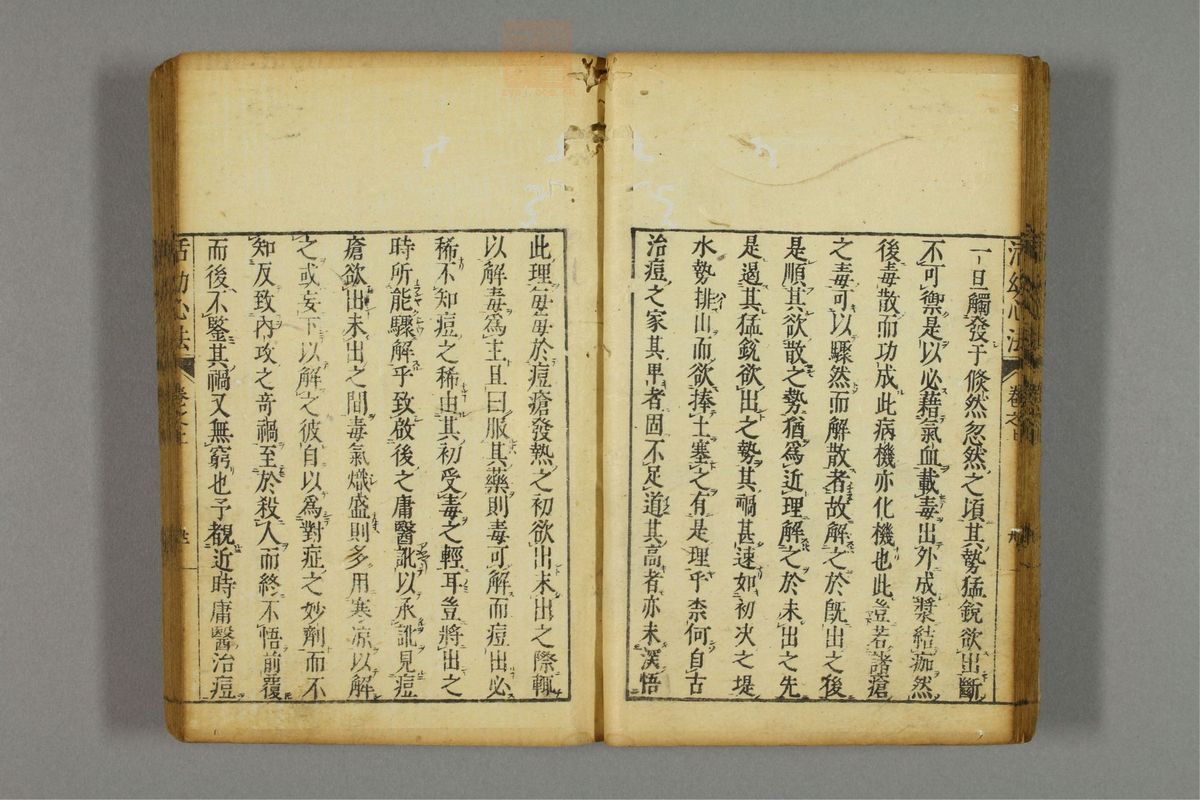 活幼心法
卷之
一旦觸發于倏然忽然之頃其勢猛銳欲出斷
不可禦是以必藉氣血載毒出外成漿結痂然
後毒散而功成此病機亦化機也此豈若諸瘡
之毒可以驟然而解散者故解之於旣出之後
是順其欲散之勢猶爲近理解之於未出之先
是遏其猛銳欲出之勢其禍甚速如初决之堤
水勢排山而欲捧土塞之有是理乎柰何自古
治痘之家其卑者固不足道其高者亦未深悟
此理每每於痘瘡發熱之初欲出未出之際輙
以解毒爲主且曰服其藥則毒可解而痘出必
稀不知痘之稀由其初受毒之輕耳豈將出之
時所能驟解乎致啟後之庸醫訛以承訛見痘
瘡欲出未出之間毒氣熾盛則多用寒凉以解
之或妄下以解之彼自以爲對症之妙劑而不
知反致內攻之奇禍至於殺人而終不悟前覆
而後不鑒其禍又無窮也予觀近時庸醫治痘
活幼心法
卷之